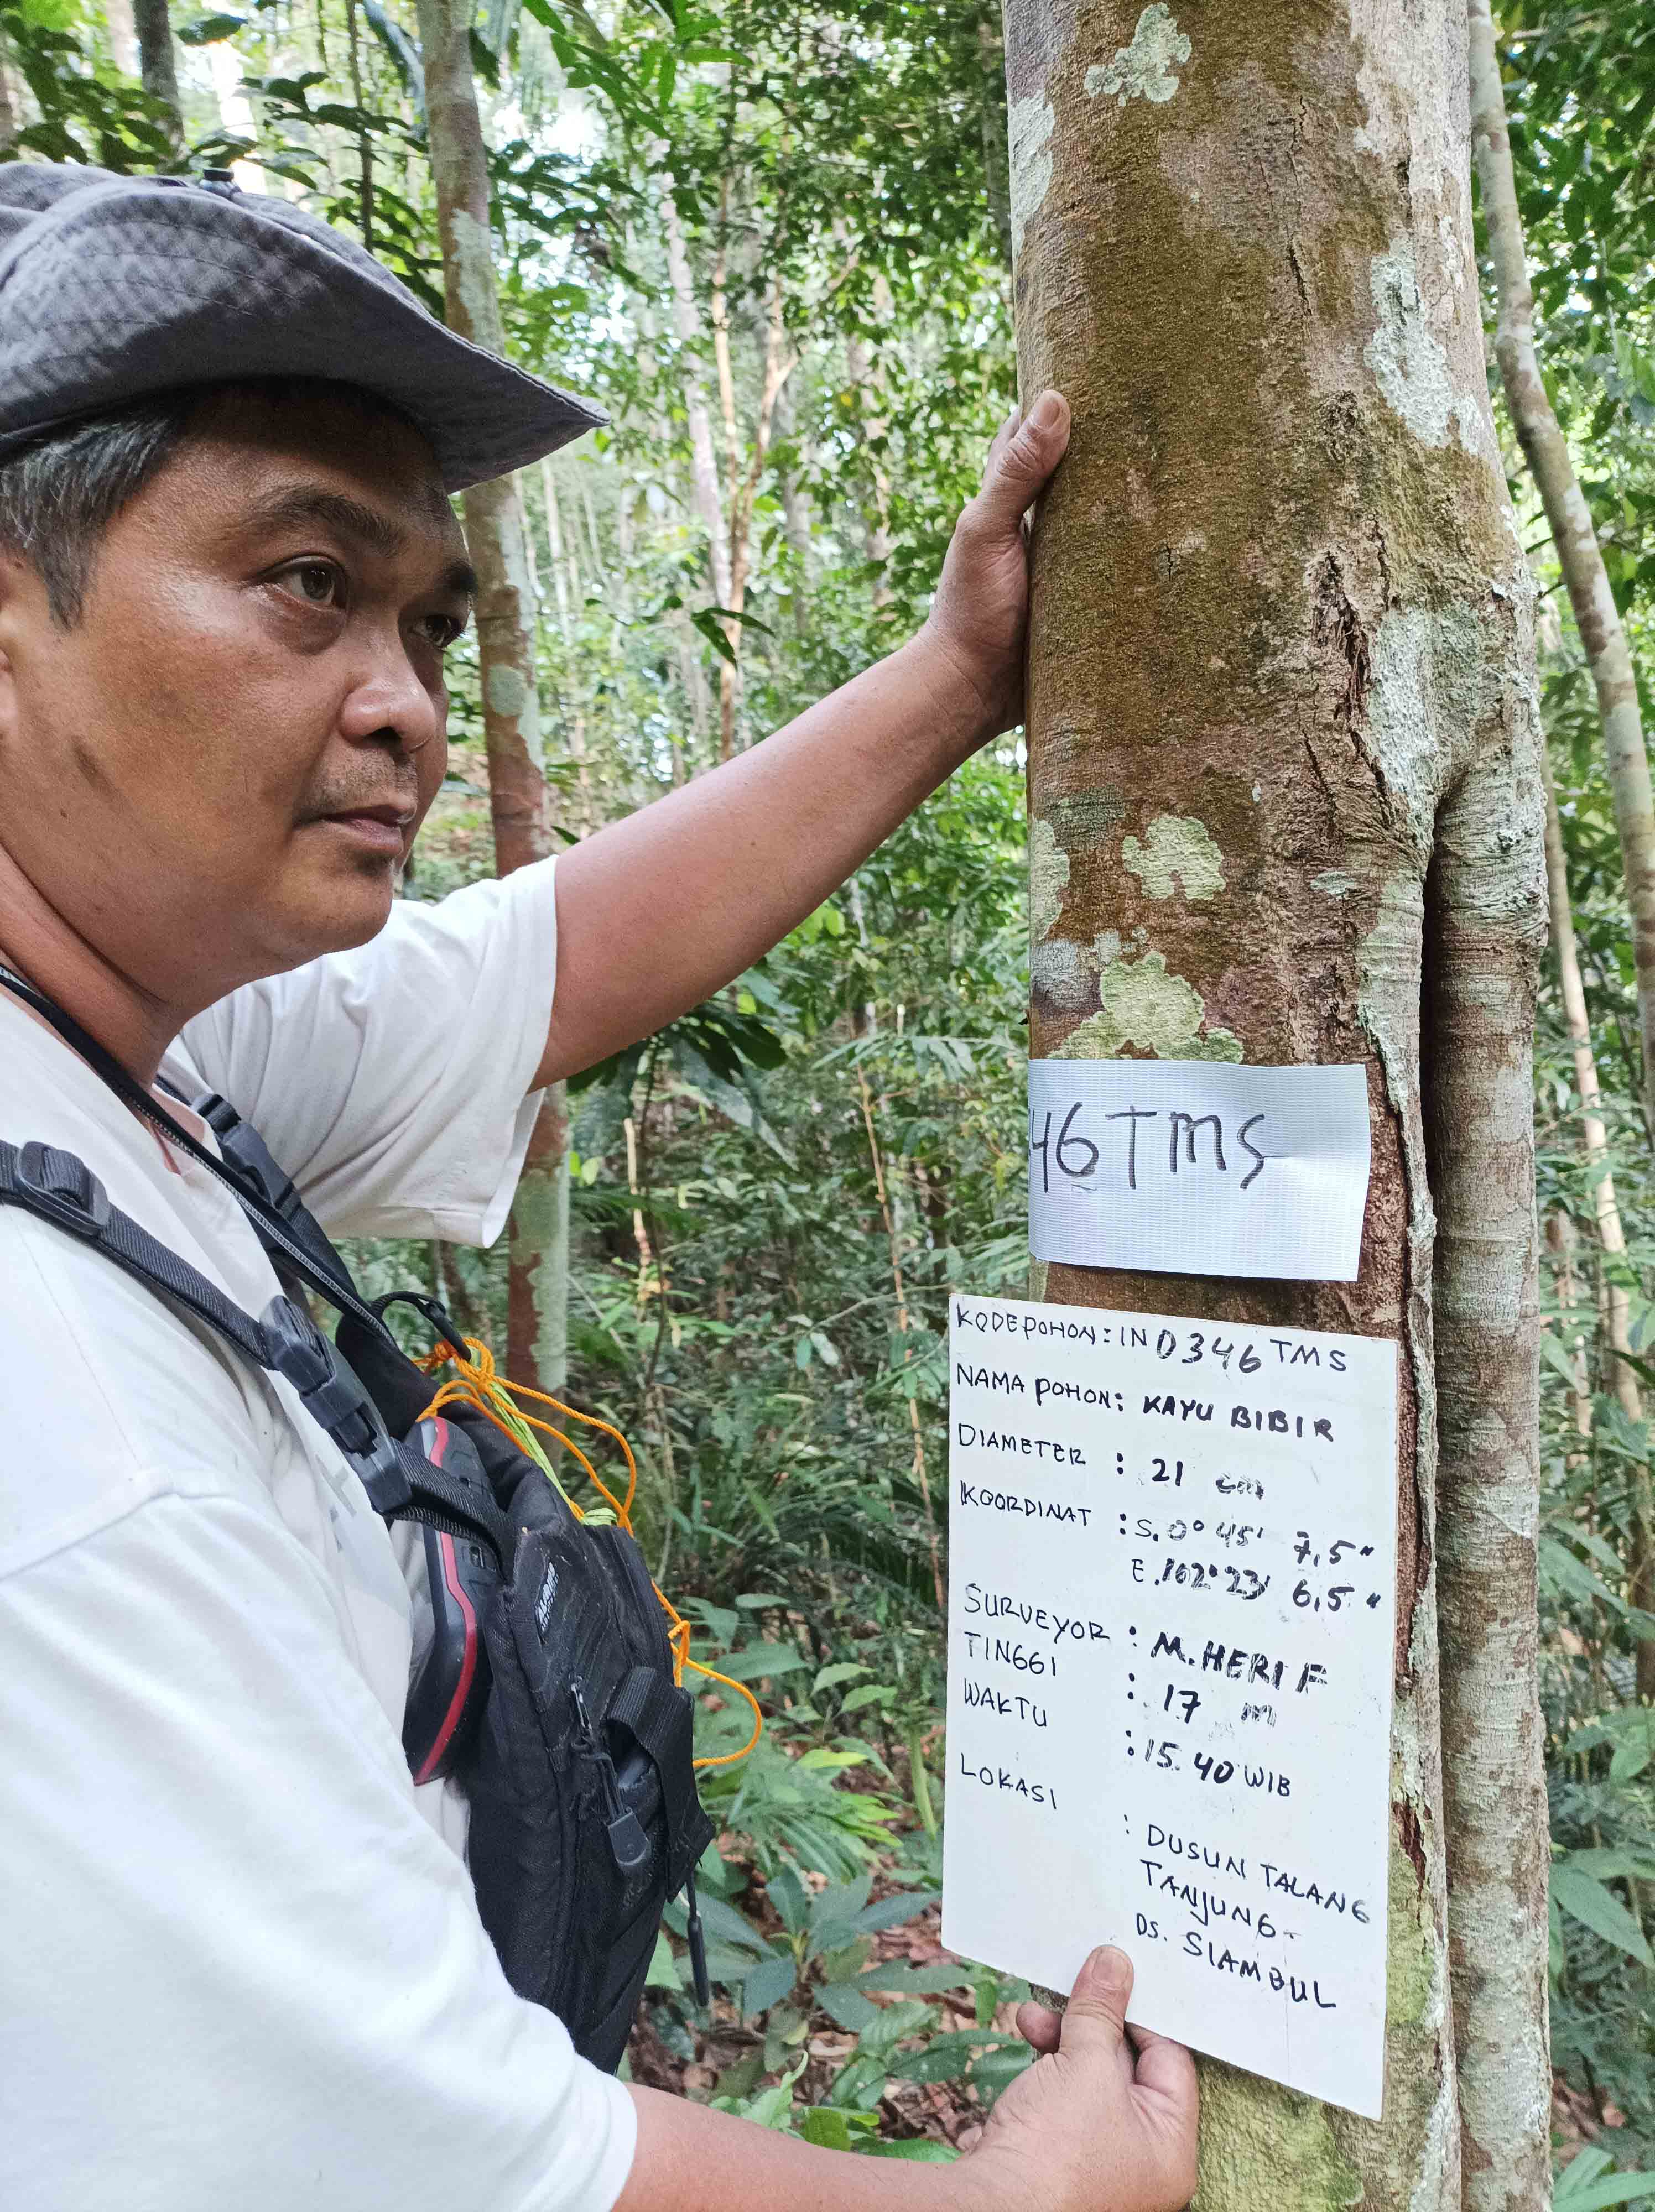 46 TMS
KODE POHON : IND346 TMS
NAMA POHON : KAYU BIBIR
DIAMETER : 21 cm
KOORDINAT : S. 0° 45' 7,5"
E. 102° 23' 6,5"
SURVEYOR : M. HERI F
TINGGI : 17 m
WAKTU : 15.40 WIB
LOKASI : DUSUN TALANG
TANJUNG -
Ds. SIAMBUL